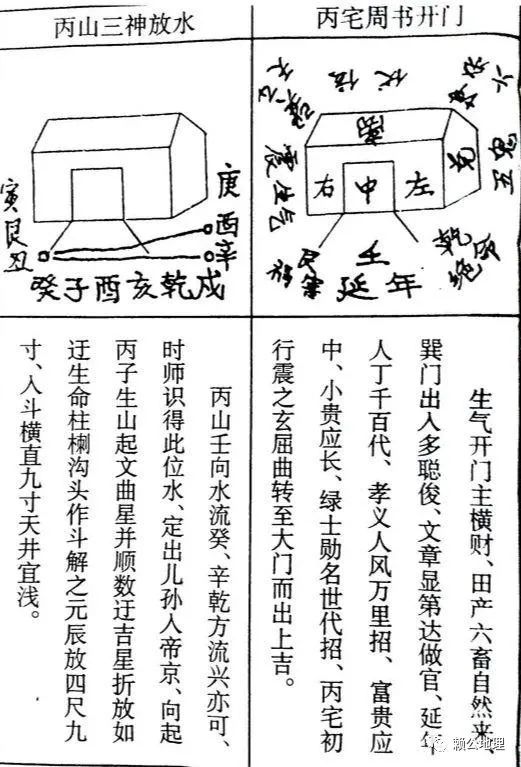 丙宅周书开门
伏位
五鬼
兑
南
右
中
左
生气
乾
绝命
壬
延年
生气开门主横财、田产六畜自然来、
巽门出入多聪俊、文章显第达做官、延年
人丁千百代、孝义人风万里招、富贵应
中、小贵应长、绿士勋名世代招、丙宅初
行震之玄屈曲转至大门而出上吉。
丙山三神放水
寅艮丑
庚
酉
辛
癸子酉亥乾戌
丙山壬向水流癸、辛乾方流兴亦可、
时师识得此位水、定出儿孙人帝京、向起
丙子生山起文曲星并顺数迂吉星折放如
迂生命柱樃沟头作斗解之元辰放四尺九
寸、入斗横直九寸天井宜浅。
赖公地理